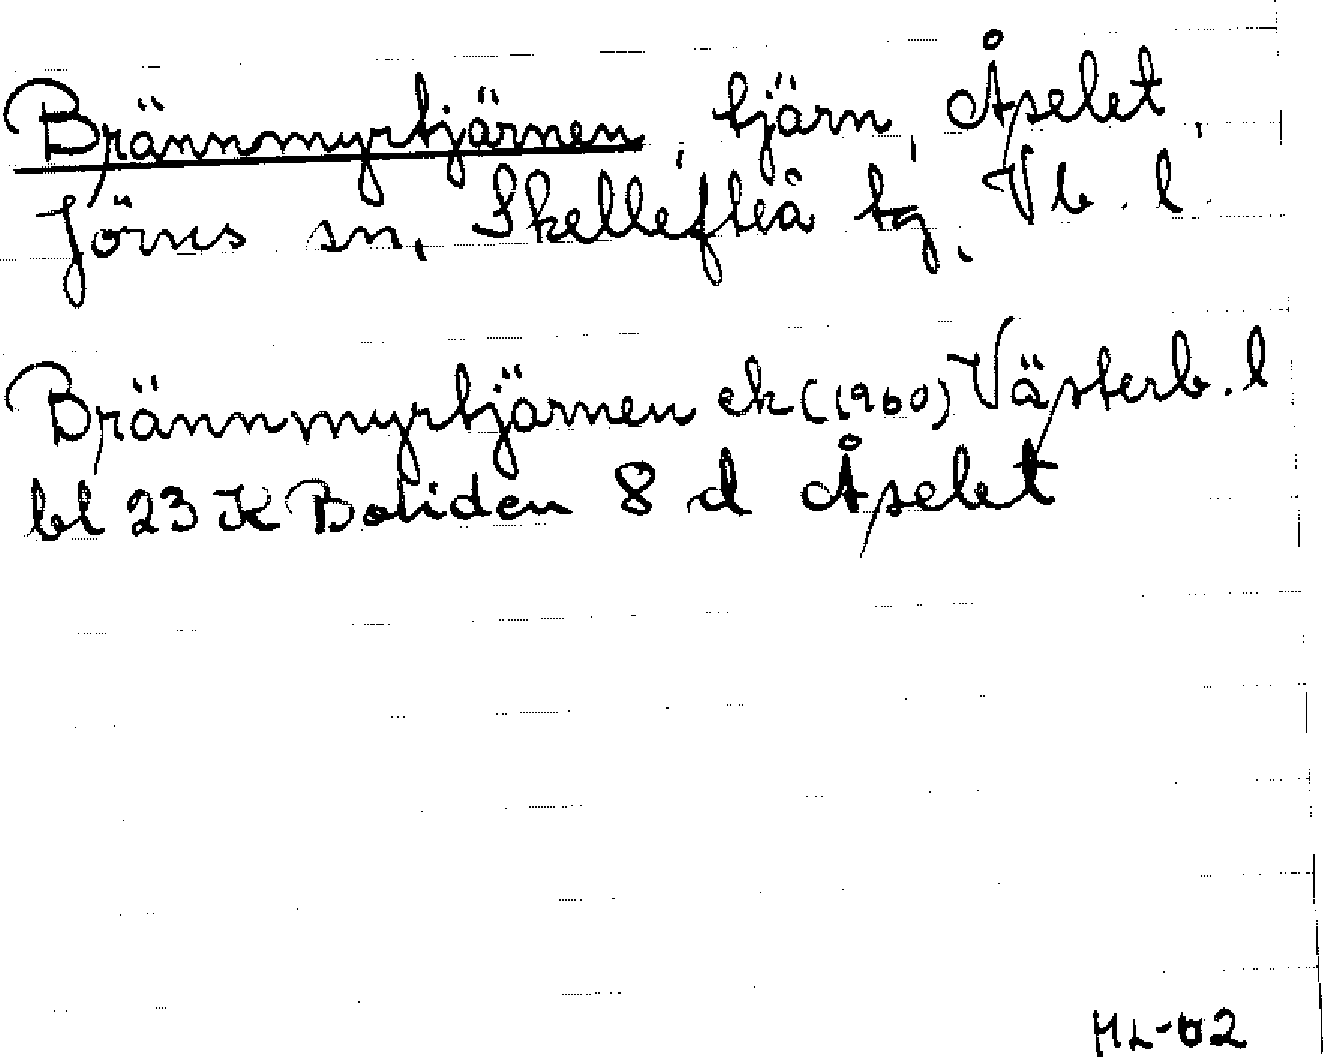 Brännmyrtjärnen, tjärn, Åselet,
Jörns sn, Skellefteå tg, Vb. l
Brännmyrtjärnen ek (1960) Västerb. l
bl 23 K Boliden 8 d Åselet